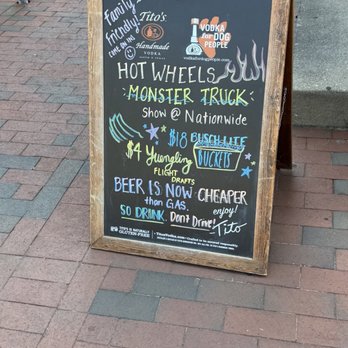 Family
Friendly!
Tito's
Handmade
VODKA
VODKA
for DOG
PEOPLE
vodkafordogpeople.com
HOT WHEELS
MONSTER TRUCK
Show @ Nationwide
$18 BUSCH LITE
BUCKETS
$4 Yuengling
FLIGHT
DRAFTS
BEER IS NOW CHEAPER
than GAS.
enjoy!
SO DRINK. Don't Drive!
Tito
TITO'S IS NATURALLY
GLUTEN-FREE